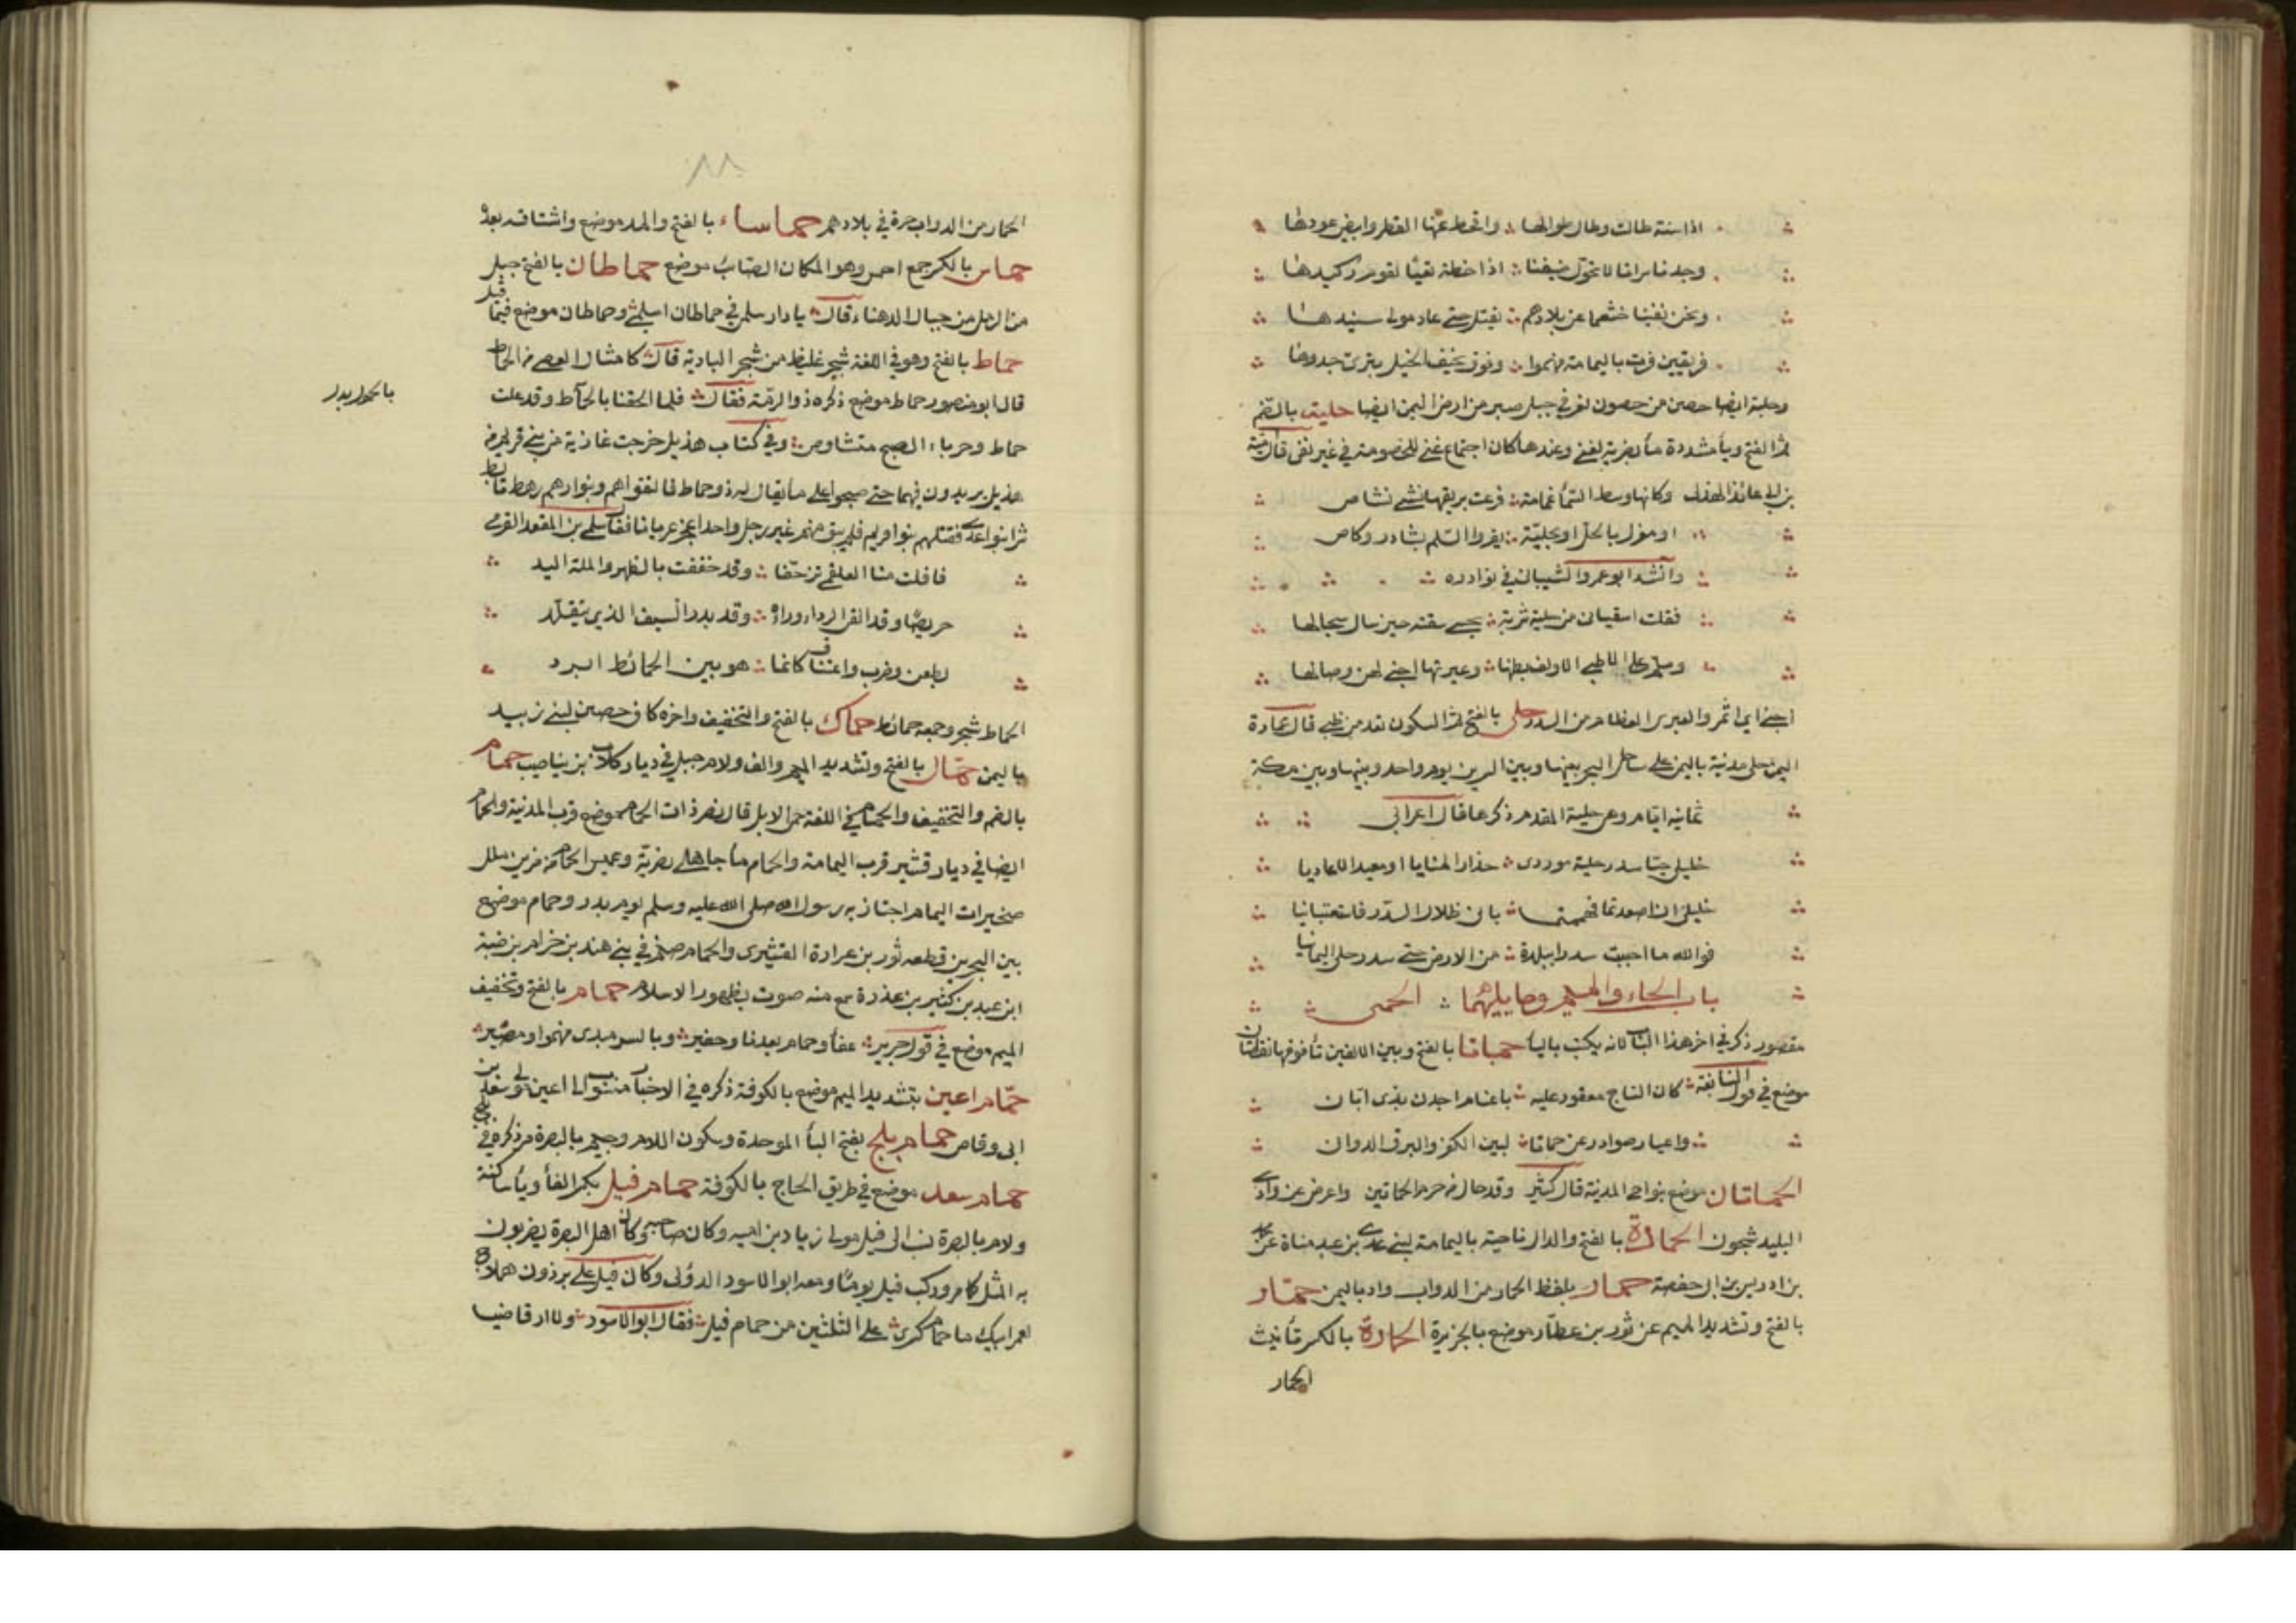 اذا سنة طالت وطال طوالها واقحط عنها القطر وابيض عودها
وجدنا سراتا لا يحول ضيفنا اذا خطة تعيا لقوم نكيدها
ونحن نفينا خثعما عن بلادهم تقتل حتى عاد مولى سنيدها
فريقين فرق باليمامة منهموا وفرق بخيف الخيل تترى حدودها
وحلبة ايضا حصن من حصون تعز في جبل صبر من ارض اليمن ايضا حلية بالضم
ثم الفتح ويا مشددة ماء بضرية لغنى وعندها كان اجتماع غنى للخصومة في غير نفى قال امية
بن ابى عائذ الهذلى وكانها وسط النساء غمامة فرعت بريقها نشئ نشاص
او مغزل بالخل او بحلية يقروا السلم بشادن وكاص
وانشد ابو عمرو الشيبانى في نوادره
فقلت اسقيانى من حلية شربة بحسى سقته حين سال سجالها
وسلم على الاظبى الاوالف بطنها وعبرتها اجنى لهن وصالها
اجنى اى اثمر والعبرى العظام من السدر حلى بالفتح ثم السكون بعدمن ظبى قال عمارة
اليمن حلى مدينة باليمن على ساحل البحر بينها وبين السرين يوم واحد وبينها وبين مكة
ثمانية ايام وهى حلية المقدم ذكرها قال اعرابى
خليلى حبا سدر حلية موردى حذار المنايا او معيد الاعاديا
خليلى ان اصعدتما فهممتما بان ظلال السدر فاستتبانيا
فوالله ما احببت سدرا ببلدة من الارض حتى سدر حلى اليمانيا
باب الحاء والميم وما يليهما الحمى
مقصور ذكر في اخر هذا الباب لانه يكتب باليا حماتا بالفتح وبين الالفين تا فوقها نقطتان
موضع في قول النابغة كان التاج معقود عليه باغنام اخذن بذى ابان
واعيار صوادر عن حماتا لبين الكفر والبرق الدوان
الحماتان موضع بنواحى المدينة قال كثير وقد حال من حرم الحماتين واعرض من وادى
البليد شجون الحمادة بالفتح والدال ناحية باليمامة لبنى عدى بن عبد مناة عن محمد
بن ادريس بن ابى حفصة حمار بلفظ الحمار من الدواب واد باليمن حمار
بالفتح وتشديد الميم عن ثور بن عطار موضع بالجزيرة الحمارة بالكسر تأنيث
الحمار
الحمار من الدواب حرة في بلادهم حماساء بالفتح والمد موضع واشتاقه بعد
حماس بالكسر جمع احمس وهو المكان الصلب موضع حماطان بالفتح جبل
من الرمل من جبال الدهناء قال يا دار سلمى في حماطان اسلمى وحماطان موضع فيما قيل
حماط بالفتح وهو في اللغة شجر غليظ من شجر البادية قال كامثال العصى من الحماط
قال ابو منصور حماط موضع ذكره ذو الرمة فقال فلما الحقنا بالحماط وقد علت
حماط وحرباء الصبح متشاوس وفى كتاب هذيل خرجت غازية من بنى قريم من
هذيل يريدون فهما حتى صبحوا على ماء يقال له ذو حماط فالتقواهم وبنوادهم رهط تابط
شرا بنو اعدى فقتلهم بنو قريم فلم يبق منهم غير رجل واحد اعجز عريانا فقال سلمى بن المقعد القرمى
فافلت منا العلقمى تزحفا وقد خفقت بالظهر والملة اليد
حريضا وقد القى الرداء وراءه وقد بدر السيف الذى يتقلد
بطعن وضرب واعتناق كانما هو بين الحمائط ابرد
الحماط شجر وجمعه حمائط حماك بالفتح والتخفيف واخره كاف حصن لبنى زبيد
باليمن حمال بالفتح وتشديد الميم والف ولام جبل في ديار كلاب بن يناصيب حمام
بالضم والتخفيف والحمام في اللغة حمى الابل قال نصر ذات الحمام موضع قرب المدينة والحمام
ايضا في ديار قشير قرب اليمامة والحمام ماء جاهلى بضرية وعميس الحمام من مزين ملل
صخيرات اليمام اجتاز به رسول الله صلى الله عليه وسلم يوم بدر وحمام موضع
بين البحرين قطعه ثور بن عرادة القشيرى والحمام صنم في بنى هند بن حرام بن ضبة
ابن عبد بن كثير بن عذرة سمع منه صوت بظهور الاسلام حمام بالفتح وتخفيف
الميم موضع في قول جرير عفا ذو حمام بعدنا وحفير وبالسر مبدى منهموا ومصير
حمام اعين بتشديد الميم موضع بالكوفة ذكره في الاخبار منسوب الى اعين مولى سعد بن
ابى وقاص حمام بلج بفتح الباء الموحدة وسكون اللام وجيم بالبصرة مر ذكره في بلج
حمام سعد موضع في طريق الحاج بالكوفة حمام فيل بكسر الفاء وياء ساكنة
ولام بالبصرة نسب الى فيل مولى زياد بن ابيه وكان حاجبه وكان اهل البصرة يضربون
به المثل كامر وركب فيل يوما ومعه ابو الاسود الدؤلى وكان فيل على برذون هملاج
لعمر ابيك ما حمام كسرى على الثلثين من حمام فيل فقال ابو الاسود ولا ارقاضيا